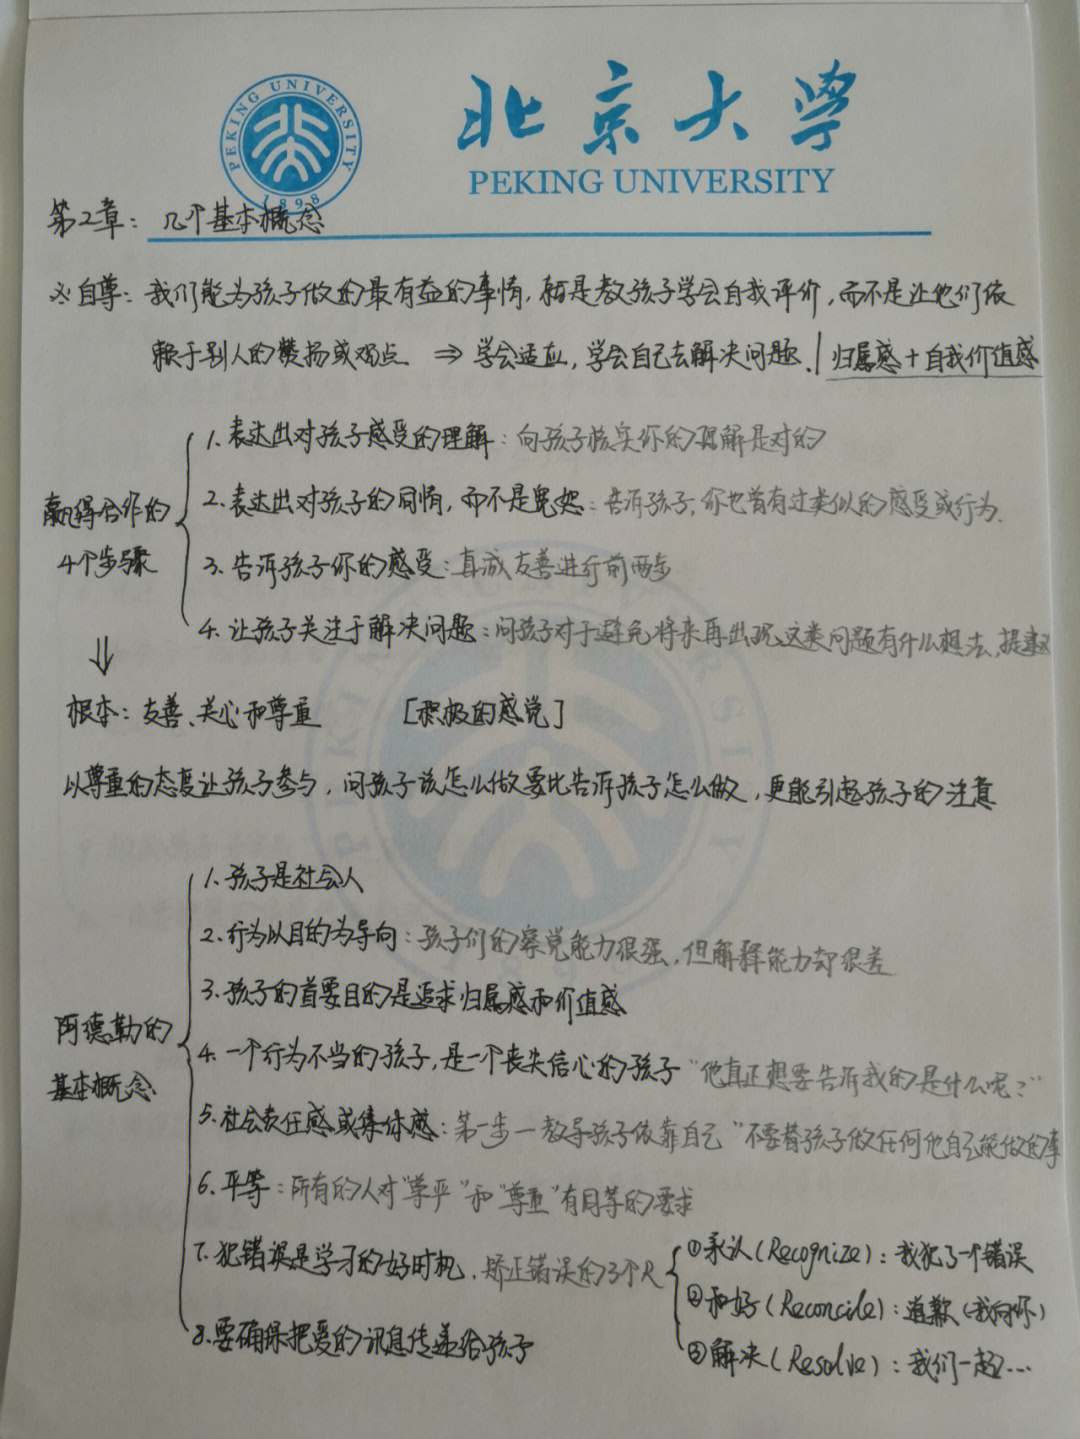 PEKING UNIVERSITY
1898
北京大学
PEKING UNIVERSITY
第2章: 几个基本概念
※自尊: 我们能为孩子做的最有益的事情,就是教孩子学会自我评价,而不是让他们依
赖于别人的赞扬或观点 ⇒ 学会适应,学会自己去解决问题. | 归属感+自我价值感
赢得合作的
4个步骤
1. 表达出对孩子感受的理解: 向孩子核实你的理解是对的
2. 表达出对孩子的同情,而不是宽恕: 告诉孩子,你也曾有过类似的感受或行为.
3. 告诉孩子你的感受: 真诚友善进行前两步
4. 让孩子关注于解决问题: 问孩子对于避免将来再出现这类问题有什么想法,提建议
⇓
根本: 友善、关心和尊重 [积极的感觉]
以尊重的态度让孩子参与,问孩子该怎么做要比告诉孩子怎么做,更能引起孩子的注意
阿德勒的
基本概念
1. 孩子是社会人
2. 行为以目的为导向: 孩子们的察觉能力很强,但解释能力却很差
3. 孩子的首要目的是追求归属感和价值感
4. 一个行为不当的孩子,是一个丧失信心的孩子 "他真正想要告诉我的是什么呢?"
5. 社会责任感或集体感: 第一步—教导孩子依靠自己 "不要替孩子做任何他自己能做的事
6. 平等: 所有的人对"尊严"和"尊重"有同等的要求
7. 犯错误是学习的好时机, 矫正错误的3个R
①承认(Recognize): 我犯了一个错误
②和好(Reconcile): 道歉(我向你)
③解决(Resolve): 我们一起...
8. 要确保把爱的讯息传递给孩子